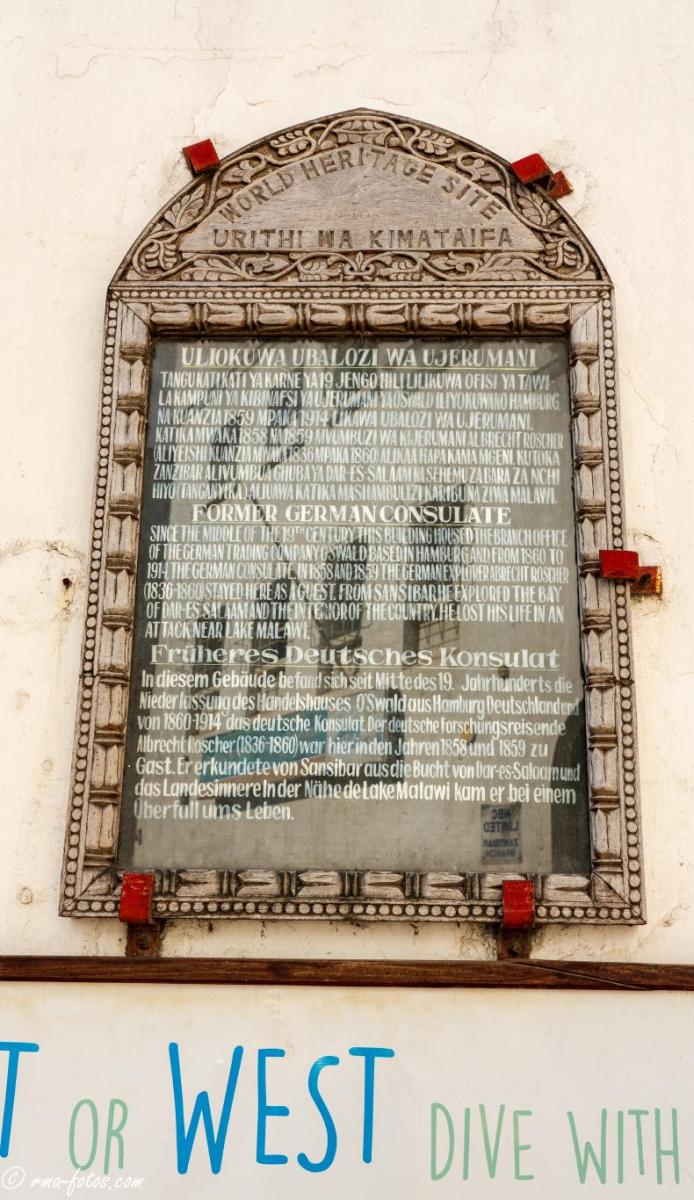 WORLD HERITAGE SITE
URITHI WA KIMATAIFA
ULIOKUWA UBALOZI WA UJERUMANI
TANGU KATI KATI YA KARNE YA 19 JENGO HILI LILIKUWA OFISI YA TAWI-
LA KAMPUNI YA KIBINAFSI YA UJERUMANI YA OSWALD ILIYOKUWAKO HAMBURG,
NA KUANZIA 1859 MPAKA 1914 LIKAWA UBALOZI WA UJERUMANI.
KATIKA MWAKA 1858 NA 1859 MVUMBUZI WA KIJERUMANI ALBRECHT ROSCHER
(ALIYEISHI KUANZIA MWAKA 1836 MPAKA 1860 ALIKAA HAPA KAMA MGENI. KUTOKA
ZANZIBAR ALIVUMBUA GHUBA YA DAR-ES-SALAAM NA SEHEMU ZA BARA ZA NCHI
HIYO (TANGANYIKA). ALIUAWA KATIKA MASHAMBULIZI KARIBU NA ZIWA MALAWI.
FORMER GERMAN CONSULATE
SINCE THE MIDDLE OF THE 19TH CENTURY THIS BUILDING HOUSED THE BRANCH OFFICE
OF THE GERMAN TRADING COMPANY OSWALD BASED IN HAMBURG AND FROM 1860 TO
1914 THE GERMAN CONSULATE. IN 1858 AND 1859 THE GERMAN EXPLORER ABRECHT ROSCHER
(1836-1860) STAYED HERE AS A GUEST. FROM SANSIBAR HE EXPLORED THE BAY
OF DAR-ES-SALAAM AND THE INTERIOR OF THE COUNTRY. HE LOST HIS LIFE IN AN
ATTACK NEAR LAKE MALAWI.
Früheres Deutsches Konsulat
In diesem Gebäude befand sich seit Mitte des 19. Jahrhunderts die
Niederlassung des Handelshauses O'Swald aus Hamburg Deutschland und
von 1860-1914 das deutsche Konsulat. Der deutsche Forschungsreisende
Albrecht Roscher (1836-1860) war hier in den Jahren 1858 und 1859 zu
Gast. Er erkundete von Sansibar aus die Bucht von Dar-es-Salaam und
das Landesinnere In der Nähe de Lake Malawi kam er bei einem
Überfall ums Leben.
NBC
LIMITED
ZANZIBAR
BRANCH
T OR WEST DIVE WITH
© rma-fotos.com